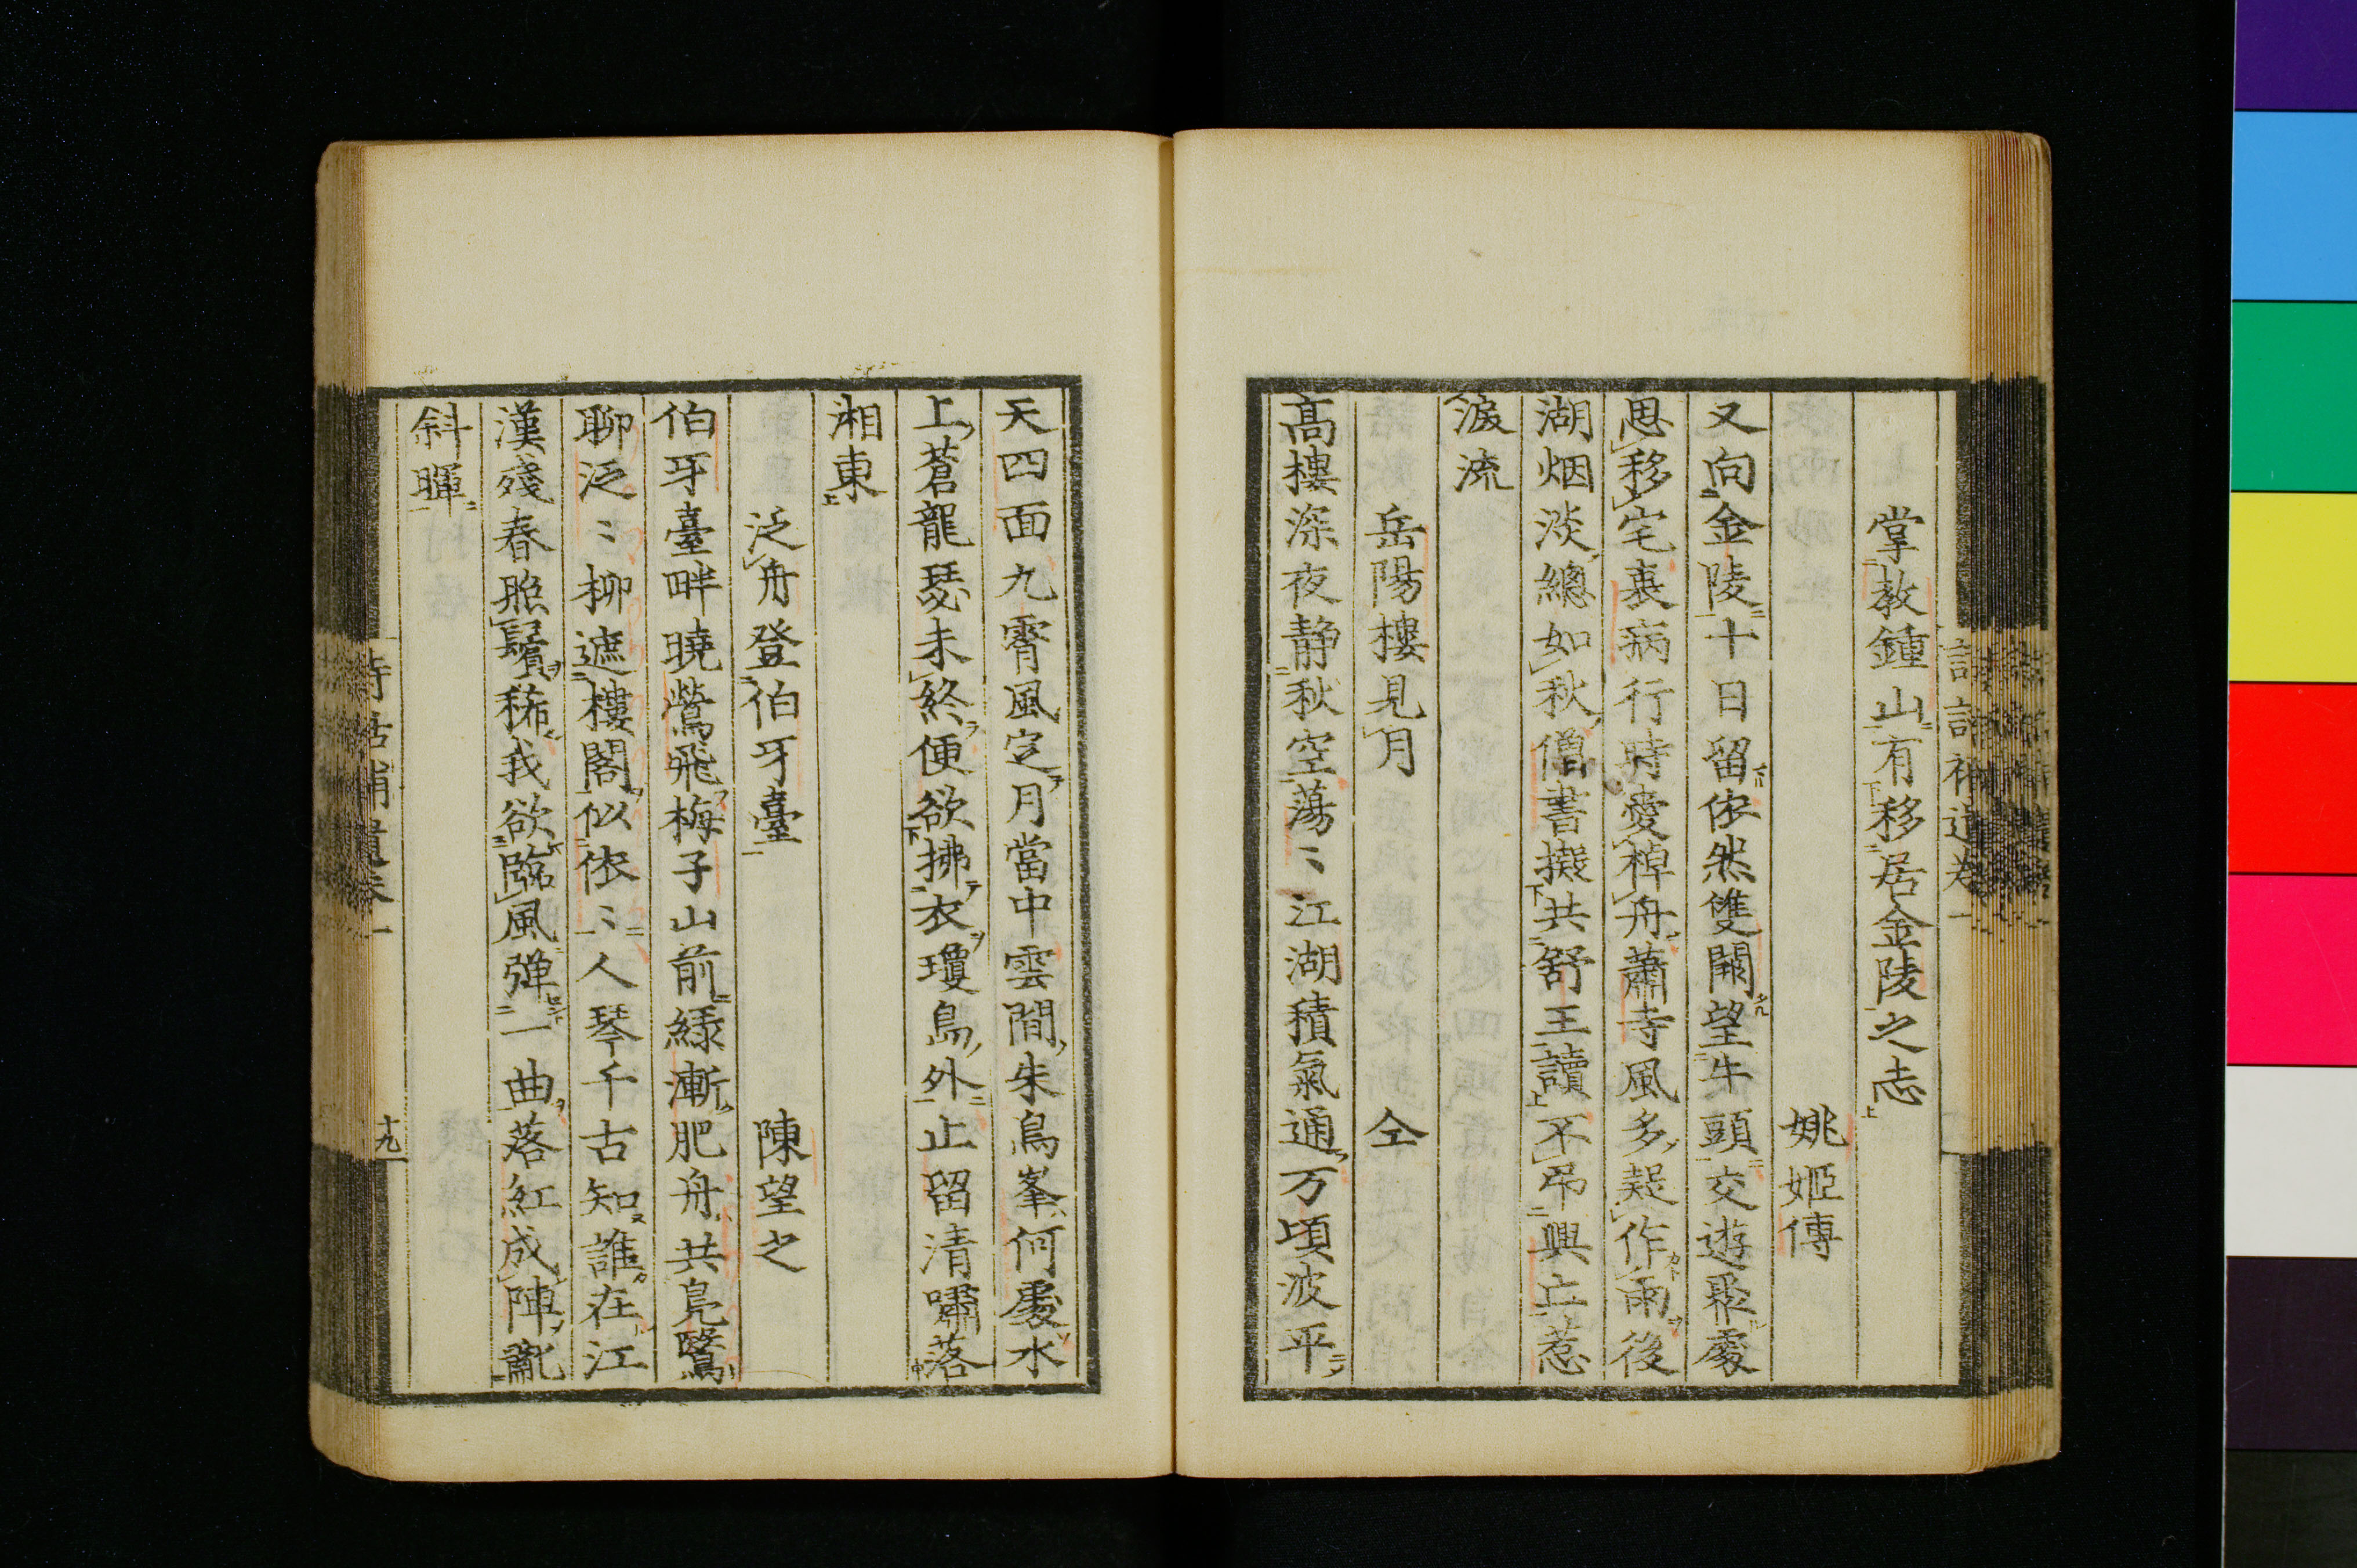 掌教鍾山有移居金陵之志
姚姬傳
又向金陵十日留依然雙闕望牛頭交遊聚處
思移宅衰病行時愛棹舟蕭寺風多疑作雨後
湖烟淡總如秋僧書擬共舒王讀不弔興亡惹
淚流
岳陽樓見月 仝
高樓深夜静秋空蕩〻江湖積氣通万頃波平
天四面九霄風定月當中雲間朱鳥峯何處水
上蒼龍瑟未終便欲拂衣瓊島外止留清嘯落
湘東
泛舟登伯牙臺 陳望之
伯牙臺畔曉鶯飛梅子山前綠漸肥舟共鳬鷖
聊泛〻柳遮樓閣似依〻人琴千古知誰在江
漢殘春照鬢稀我欲臨風弾一曲落紅成陣亂
斜暉
詩話補遺卷一
十九